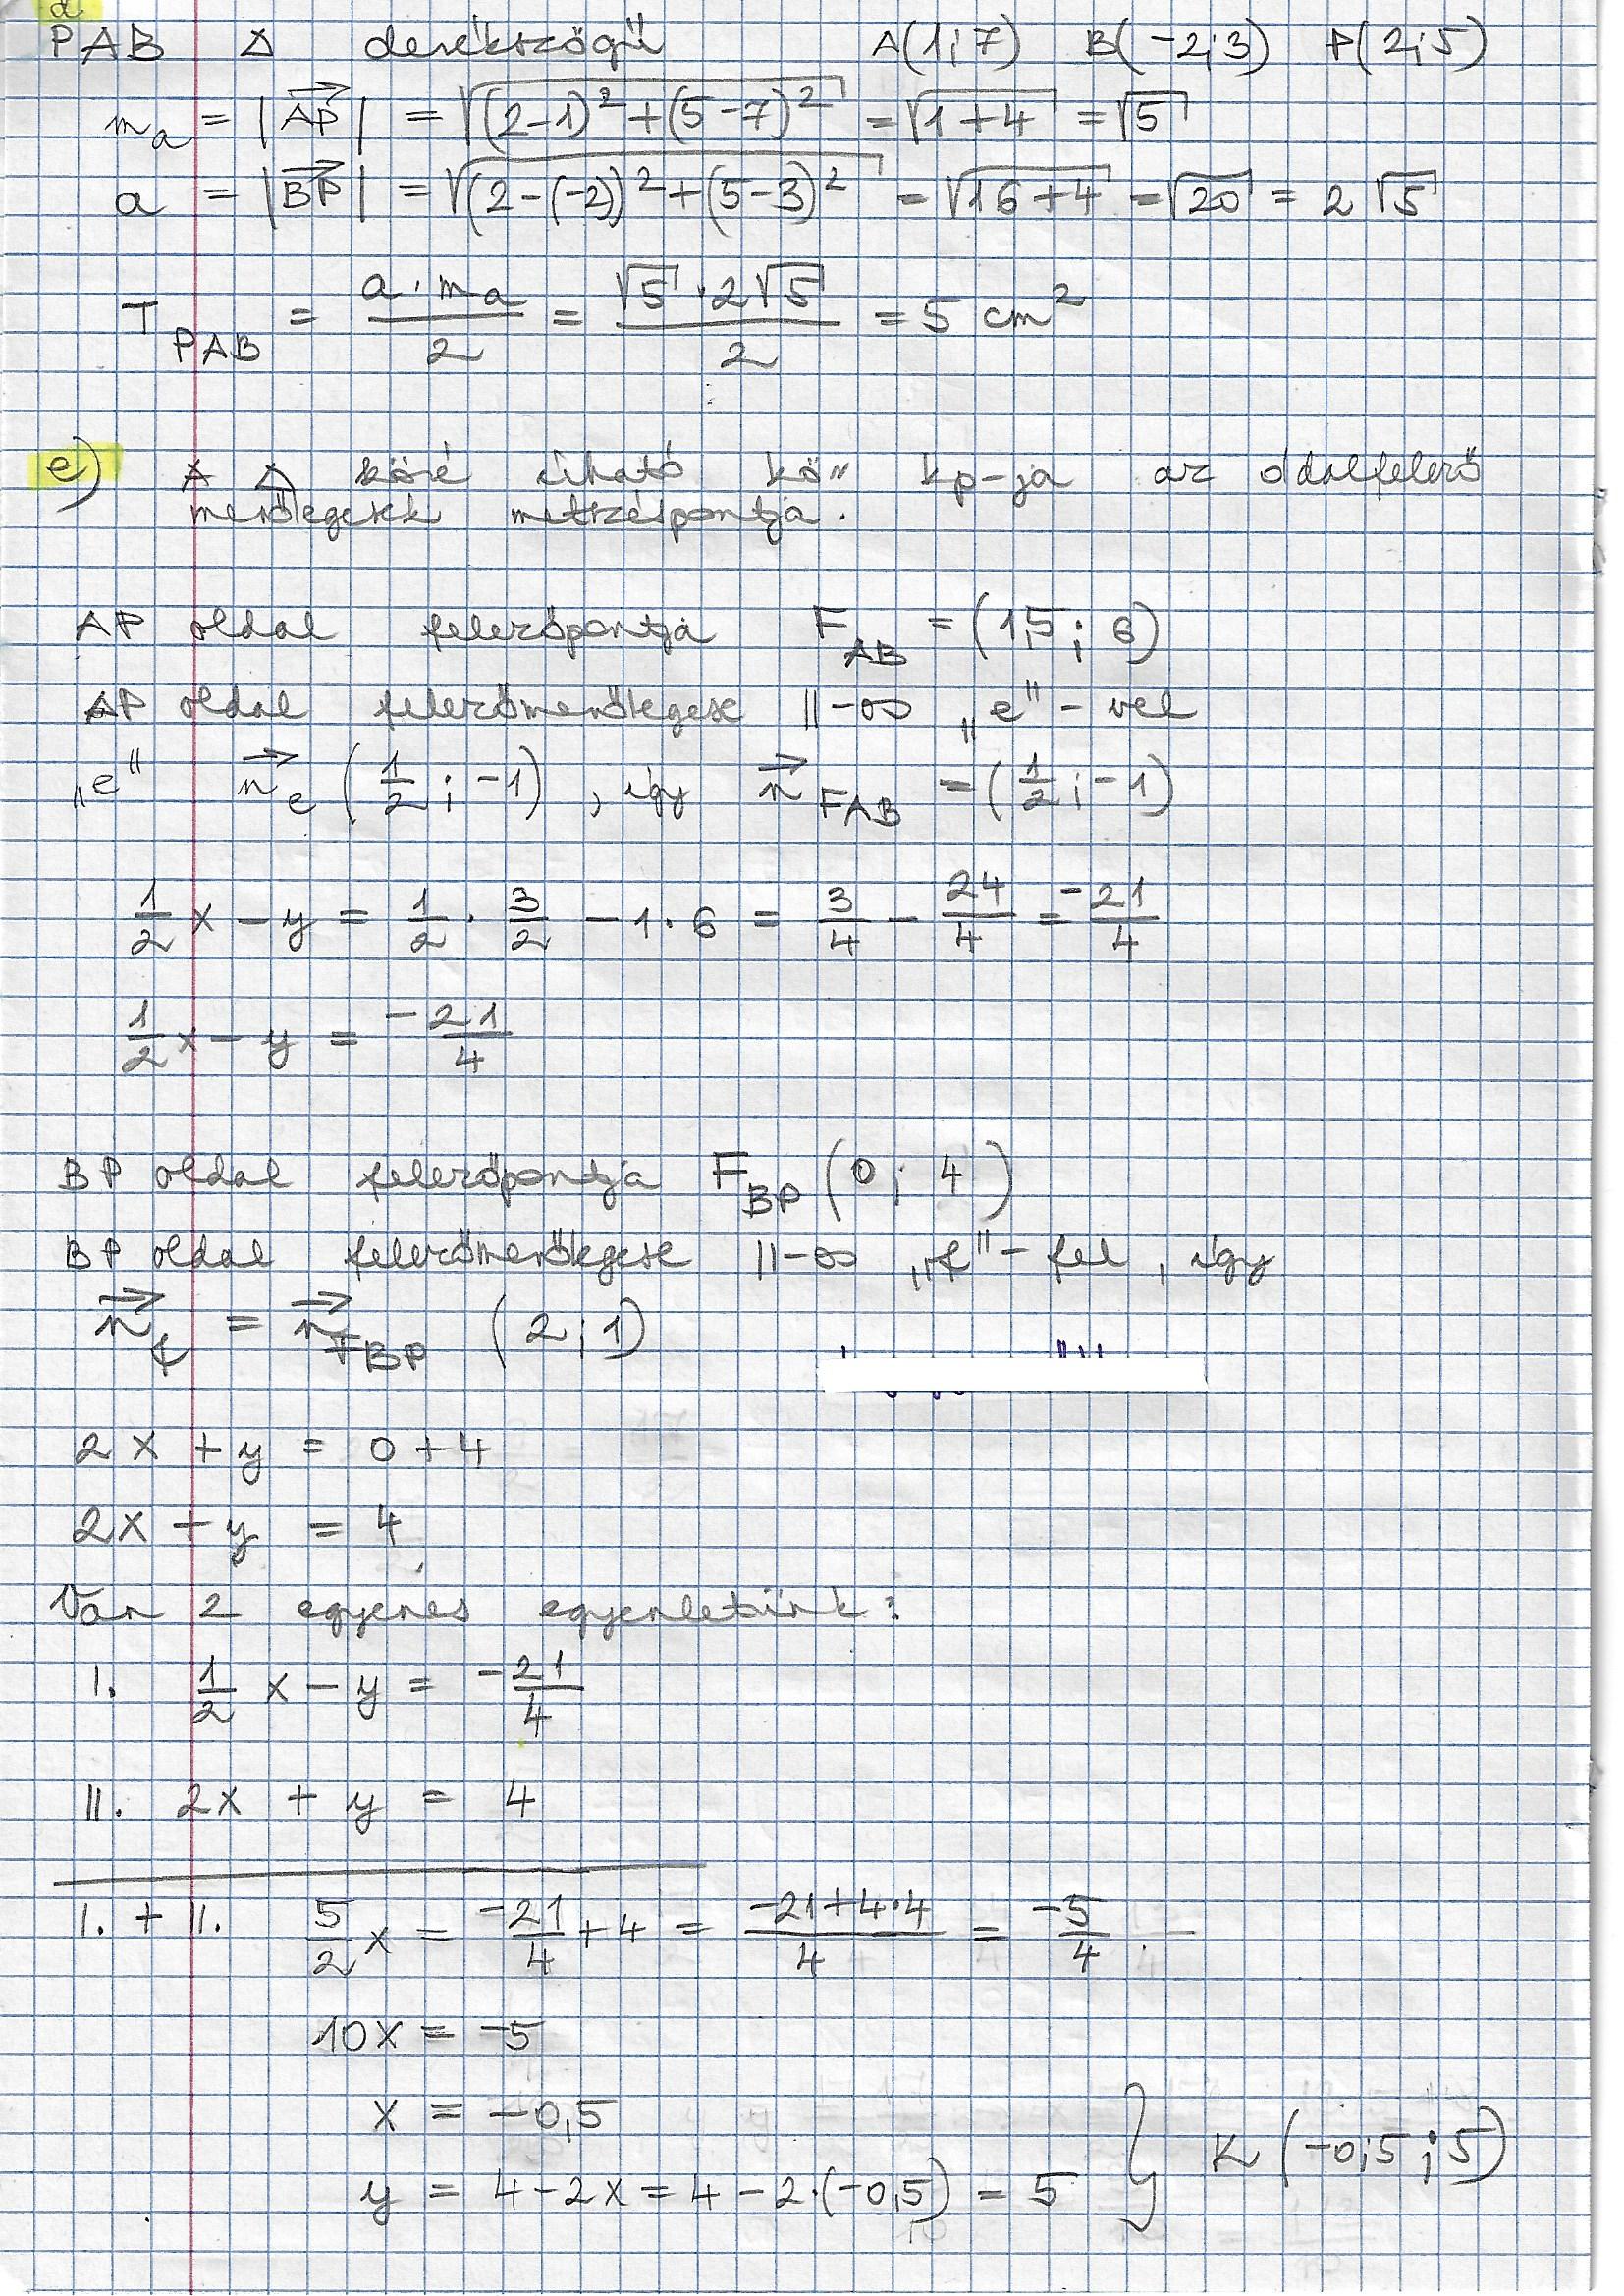 d
PAB △ derékszögű A(1;7) B(-2;3) P(2;5)
mₐ = |AP→| = √((2-1)²+(5-7)²) = √(1+4) = √5
a = |BP→| = √((2-(-2))²+(5-3)²) = √(16+4) = √20 = 2√5
T_PAB = (a·mₐ)/2 = (√5·2√5)/2 = 5 cm²
e) A △ köré írható kör kp-ja az oldalfelező
merőlegesek metszéspontja.
AP oldal felezőpontja F_AB = (1,5 ; 6)
AP oldal felezőmerőlegese ||-os „e"-vel
„e" n→_e (1/2 ; -1) , így n→_F_AB = (1/2 ; -1)
1/2 x - y = 1/2 · 3/2 - 1·6 = 3/4 - 24/4 = -21/4
1/2 x - y = -21/4
BP oldal felezőpontja F_BP (0 ; 4)
BP oldal felezőmerőlegese ||-os „f"-fel , így
n→_f = n→_F_BP (2 ; 1)
2x + y = 0 + 4
2x + y = 4
Van 2 egyenes egyenletünk:
I. 1/2 x - y = -21/4
II. 2x + y = 4
I. + II. 5/2 x = -21/4 + 4 = (-21+4·4)/4 = -5/4
10x = -5
x = -0,5
y = 4 - 2x = 4 - 2·(-0,5) = 5 } K (-0,5 ; 5)